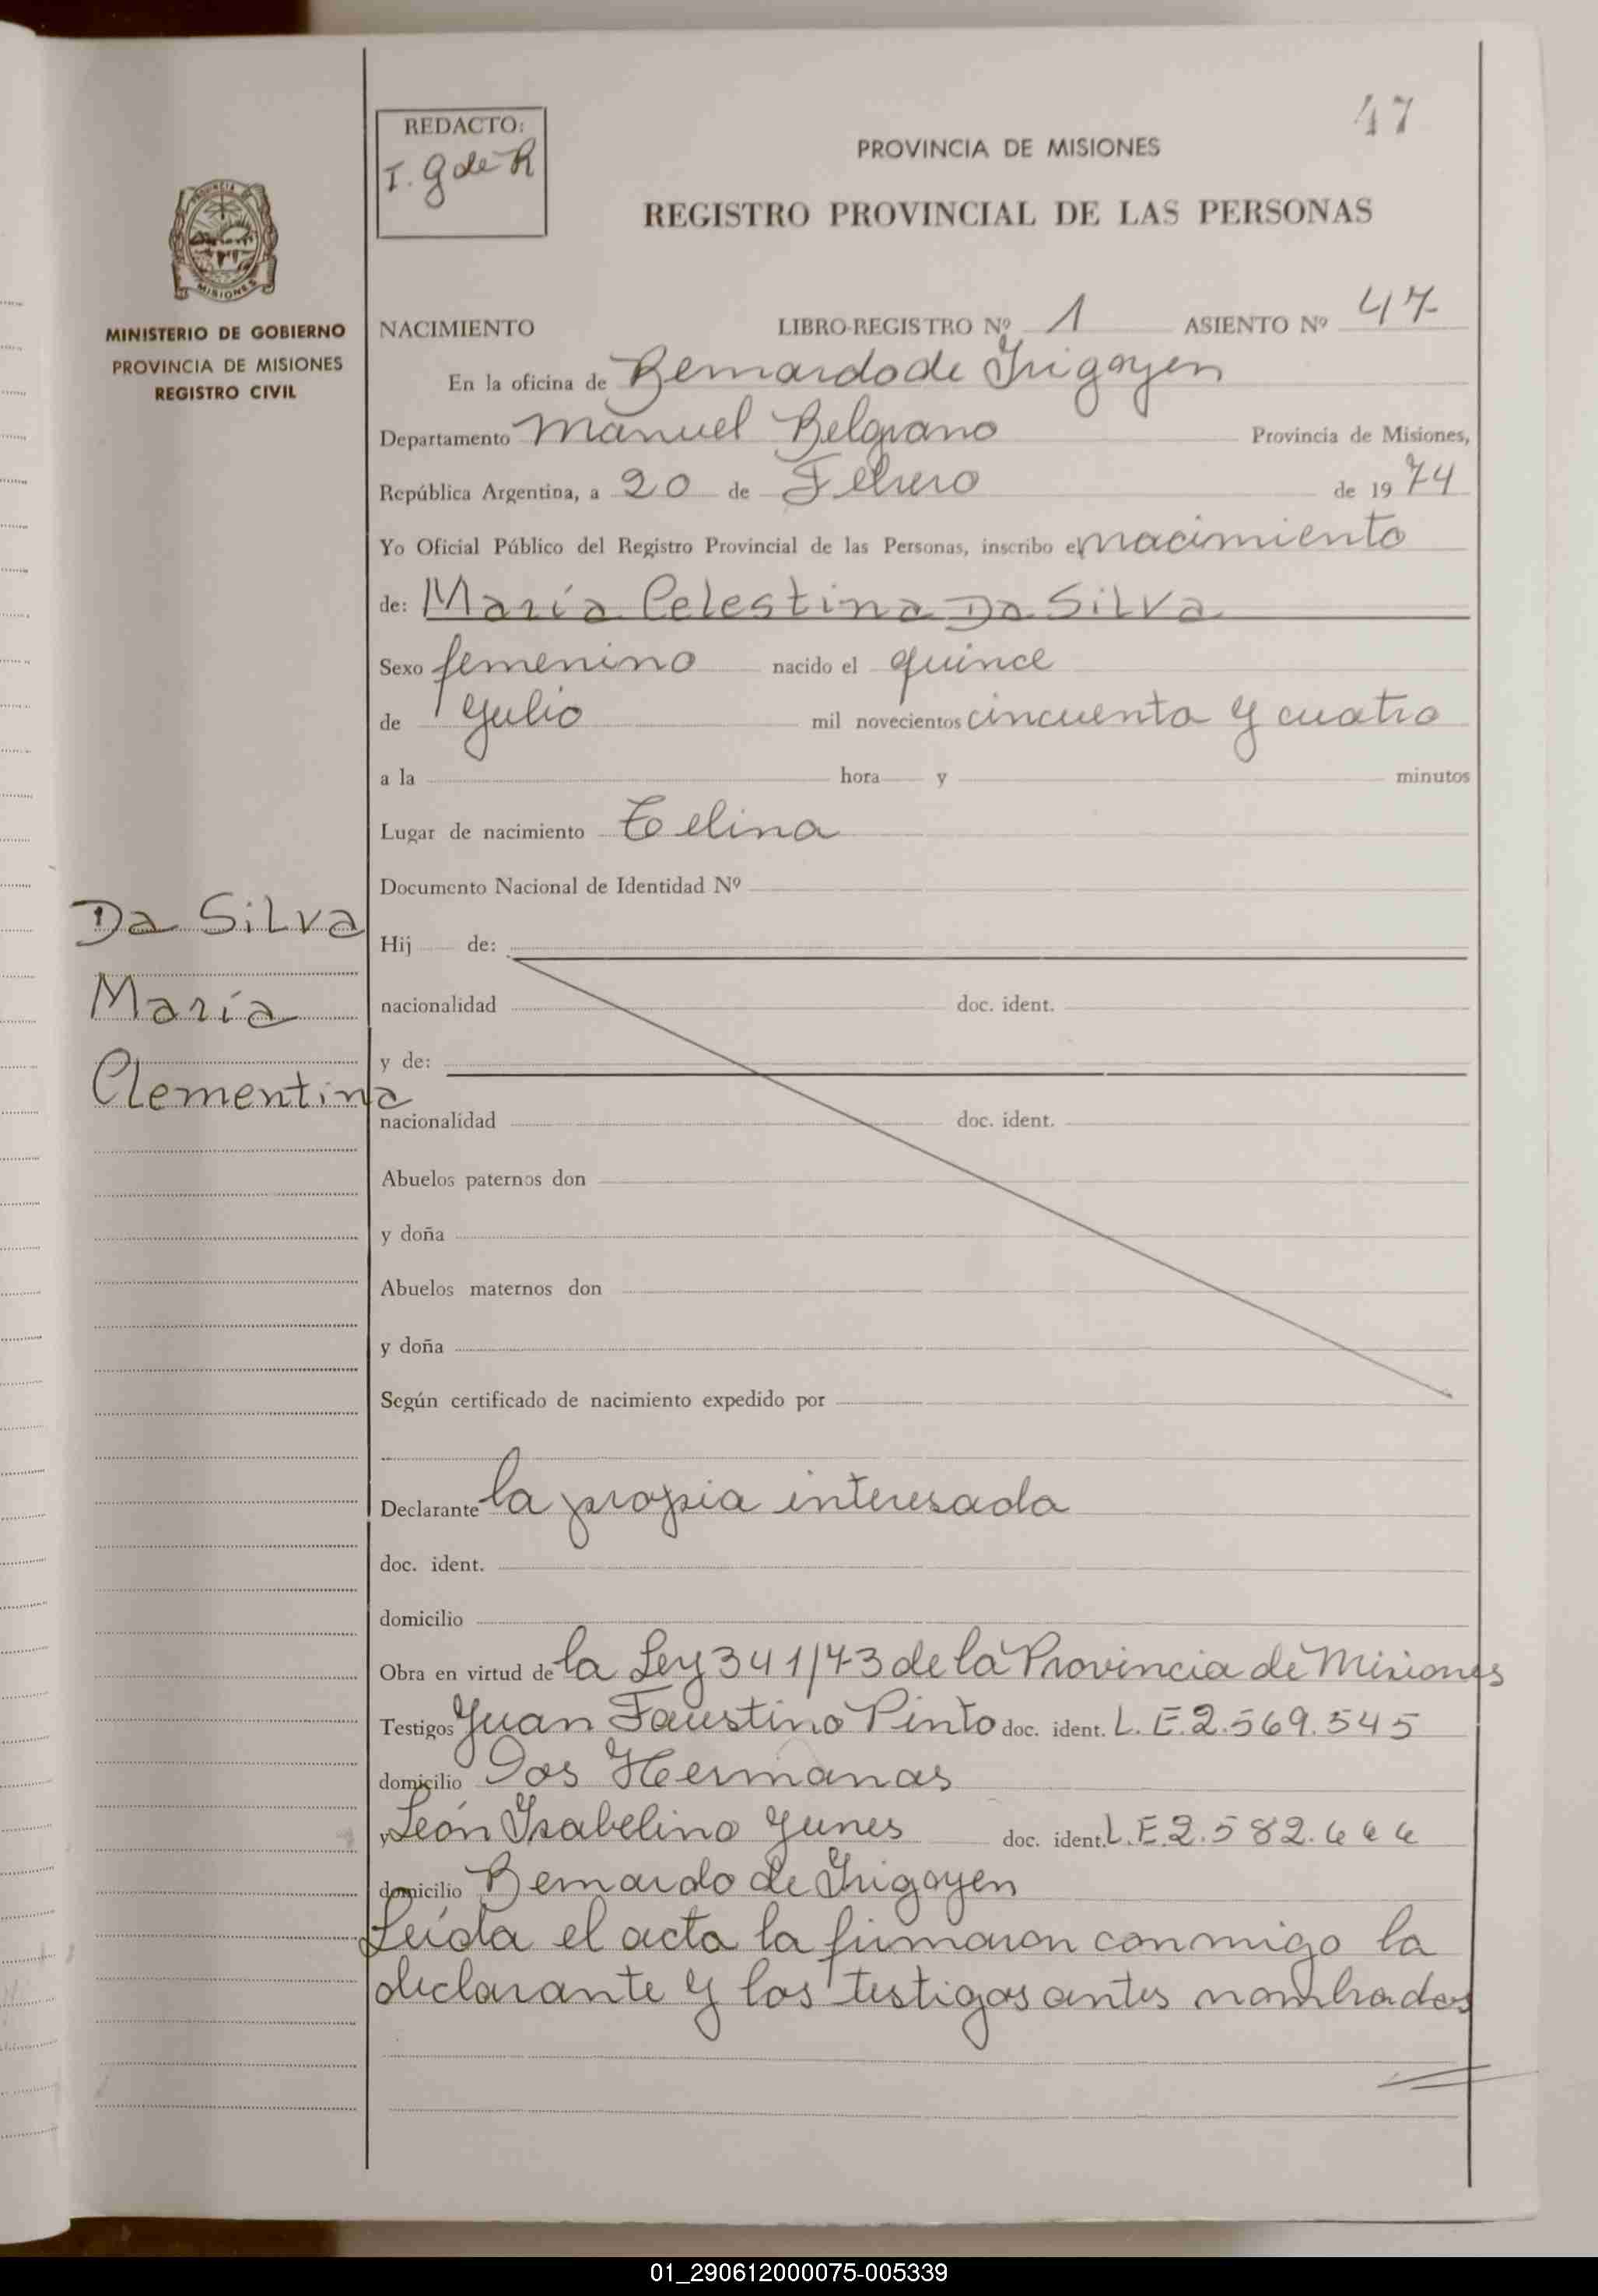 47
REDACTO:
I. G de R
PROVINCIA DE MISIONES
REGISTRO PROVINCIAL DE LAS PERSONAS
MISIONES
MINISTERIO DE GOBIERNO
PROVINCIA DE MISIONES
REGISTRO CIVIL
NACIMIENTO LIBRO-REGISTRO Nº 1 ASIENTO Nº 47
En la oficina de Bernardo de Irigoyen
Departamento Manuel Belgrano Provincia de Misiones,
República Argentina, a 20 de Febrero de 1974
Yo Oficial Público del Registro Provincial de las Personas, inscribo el nacimiento
de: María Celestina Da Silva
Sexo femenino nacido el quince
de Julio mil novecientos cincuenta y cuatro
a la hora y minutos
Lugar de nacimiento
Documento Nacional de Identidad Nº
Da Silva
María
Clementina
Hij de:
nacionalidad doc. ident.
y de:
nacionalidad doc. ident.
Abuelos paternos don
y doña
Abuelos maternos don
y doña
Según certificado de nacimiento expedido por
Declarante la propia interesada
doc. ident.
domicilio
Obra en virtud de la Ley 341/73 de la Provincia de Misiones
Testigos Juan Faustino Pinto doc. ident. L.E.2.569.545
domicilio Dos Hermanas
y León Isabelino Yunes doc. ident. L.E.2.582.666
domicilio Bernardo de Irigoyen
Leída el acta la firmaron conmigo la
declarante y los testigos antes nombrados
01_290612000075-005339